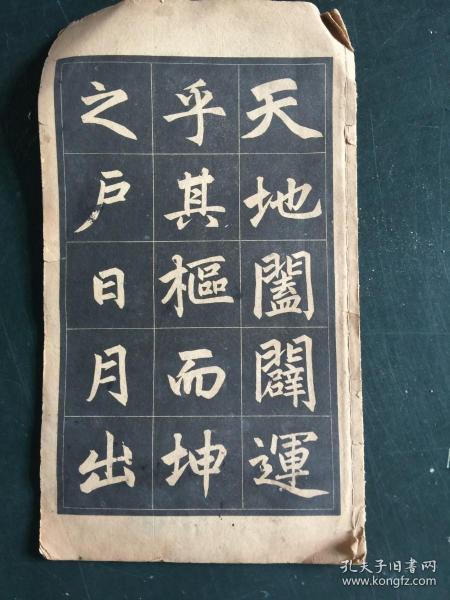 天地闔闢運
乎其樞而坤
之户日月出
孔夫子旧书网
www.kongfz.com